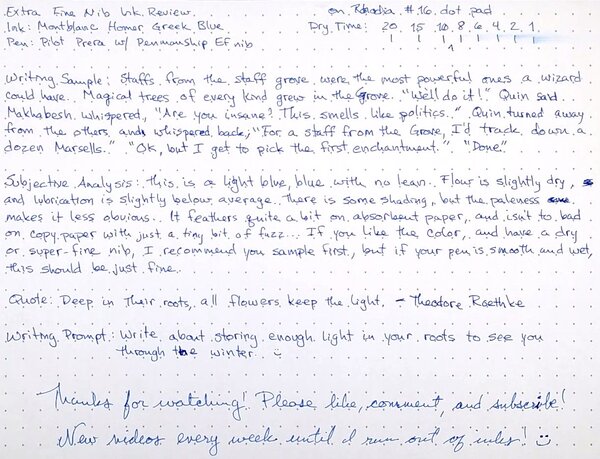 Extra Fine Nib Ink Review on Rhodia #16 dot pad
Ink: Montblanc Homer Greek Blue Dry Time: 20 15 10 8 6 4 2 1
Pen: Pilot Prera w/ Penmanship EF nib
Writing Sample: Staffs from the staff grove were the most powerful ones a wizard
could have. Magical trees of every kind grew in the Grove. "We'll do it!" Quin said.
Makhabesh whispered, "Are you insane? This smells like politics." Quin turned away
from the others and whispered back, "For a staff from the Grove, I'd track down a
dozen Marsells." "Ok, but I get to pick the first enchantment." "Done."
Subjective Analysis: This is a light blue, blue with no lean. Flow is slightly dry,
and lubrication is slightly below average. There is some shading, but the paleness
makes it less obvious. It feathers quite a bit on absorbent paper, and isn't to bad
on copy paper with just a tiny bit of fuzz. If you like the color, and have a dry
or super-fine nib, I recommend you sample first, but if your pen is smooth and wet,
this should be just fine.
Quote: Deep in their roots, all flowers keep the light. - Theodore Roethke
Writing Prompt: Write about storing enough light in your roots to see you
through the winter. :)
Thanks for watching! Please like, comment, and subscribe!
New videos every week until I run out of inks! :)